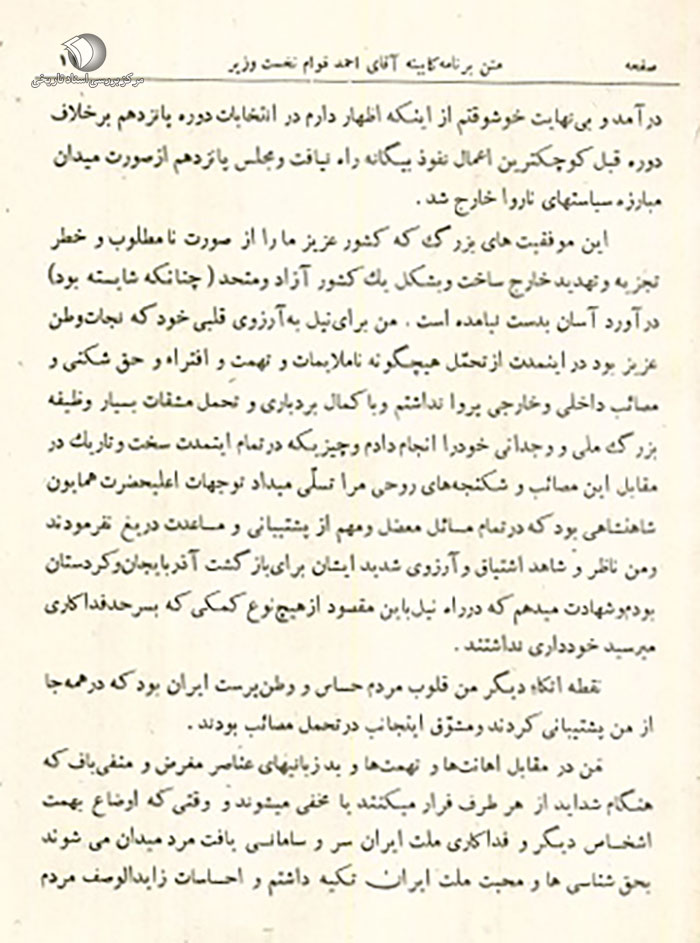 صفحه متن برنامه کابینه آقای احمد قوام نخست وزیر
مرکز بررسی اسناد تاریخی
درآمد و بی‌نهایت خوشوقتم از اینکه اظهار دارم در انتخابات دوره پانزدهم برخلاف
دوره قبل کوچکترین اعمال نفوذ بیگانه راه نیافت ومجلس پانزدهم ازصورت میدان
مبارزه سیاستهای ناروا خارج شد .
این موفقیت های بزرگ که کشور عزیز ما را از صورت نامطلوب و خطر
تجزیه و تهدید خارج ساخت وبشکل یك کشور آزاد ومتحد ( چنانکه شایسته بود)
درآورد آسان بدست نیامده است . من برای نیل به آرزوی قلبی خود که نجات وطن
عزیز بود در اینمدت از تحمّل هیچگونه ناملایمات و تهمت و افتراه و حق شکنی و
مصائب داخلی وخارجی پروا نداشتم و با کمال بردباری و تحمل مشقات بسیار وظیفه
بزرگ ملی و وجدانی خودرا انجام دادم وچیزیکه درتمام اینمدت سخت وتاریك در
مقابل این مصائب و شکنجه‌های روحی مرا تسلّی میداد توجهات اعلیحضرت همایون
شاهنشاهی بود که درتمام مسائل معضل ومهم از پشتیبانی و مساعدت دریغ نفرمودند
ومن ناظر و شاهد اشتیاق وآرزوی شدید ایشان برای باز گشت آذربایجان وکردستان
بودم وشهادت میدهم که درراه نیل باین مقصود ازهیچ نوع کمکی که بسرحدفداکاری
میرسید خودداری نداشتند .
نقطه اتکاء دیگر من قلوب مردم حساس و وطن‌پرست ایران بود که درهمه‌جا
از من پشتیبانی کردند ومشوّق اینجانب درتحمل مصائب بودند .
من در مقابل اهانت‌ها و تهمت‌ها و بد زبانیهای عناصر مغرض و منفی‌باف که
هنگام شداید از هر طرف فرار میکنند یا مخفی میشوند و وقتی که اوضاع بهمت
اشخاص دیگر و فداکاری ملت ایران سر و سامانی یافت مرد میدان می شوند
بحق شناسی ها و محبت ملت ایران تکیه داشتم و احساسات زایدالوصف مردم